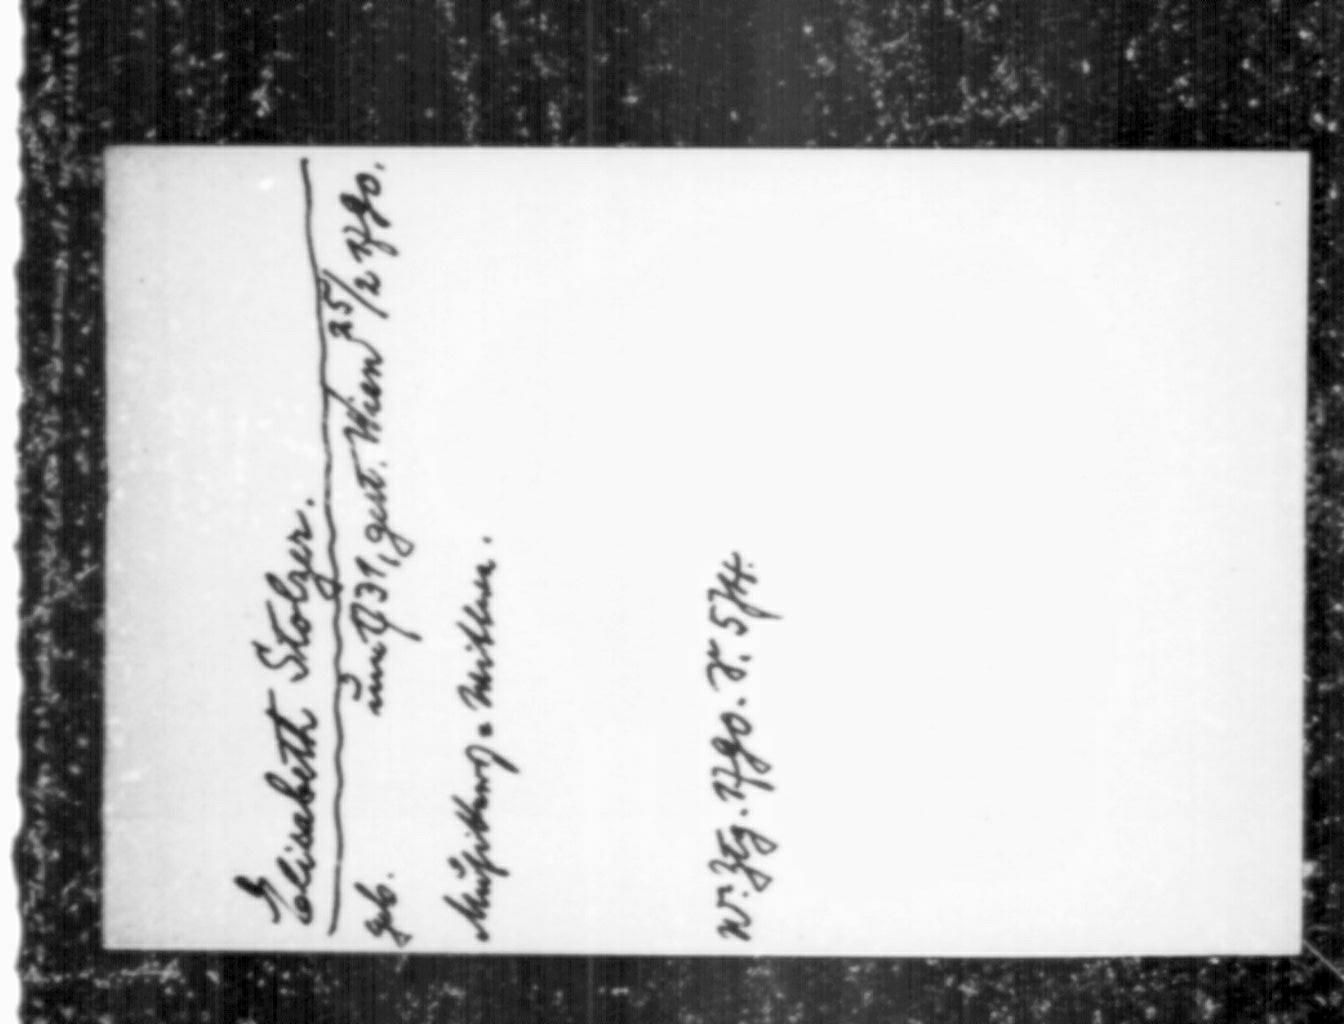 Elisabeth Stolzer.
geb. um 1731, gest. Wien 25/2 1790.
Musikers-Witwe.
W. Ztg. 1790. S. 574.